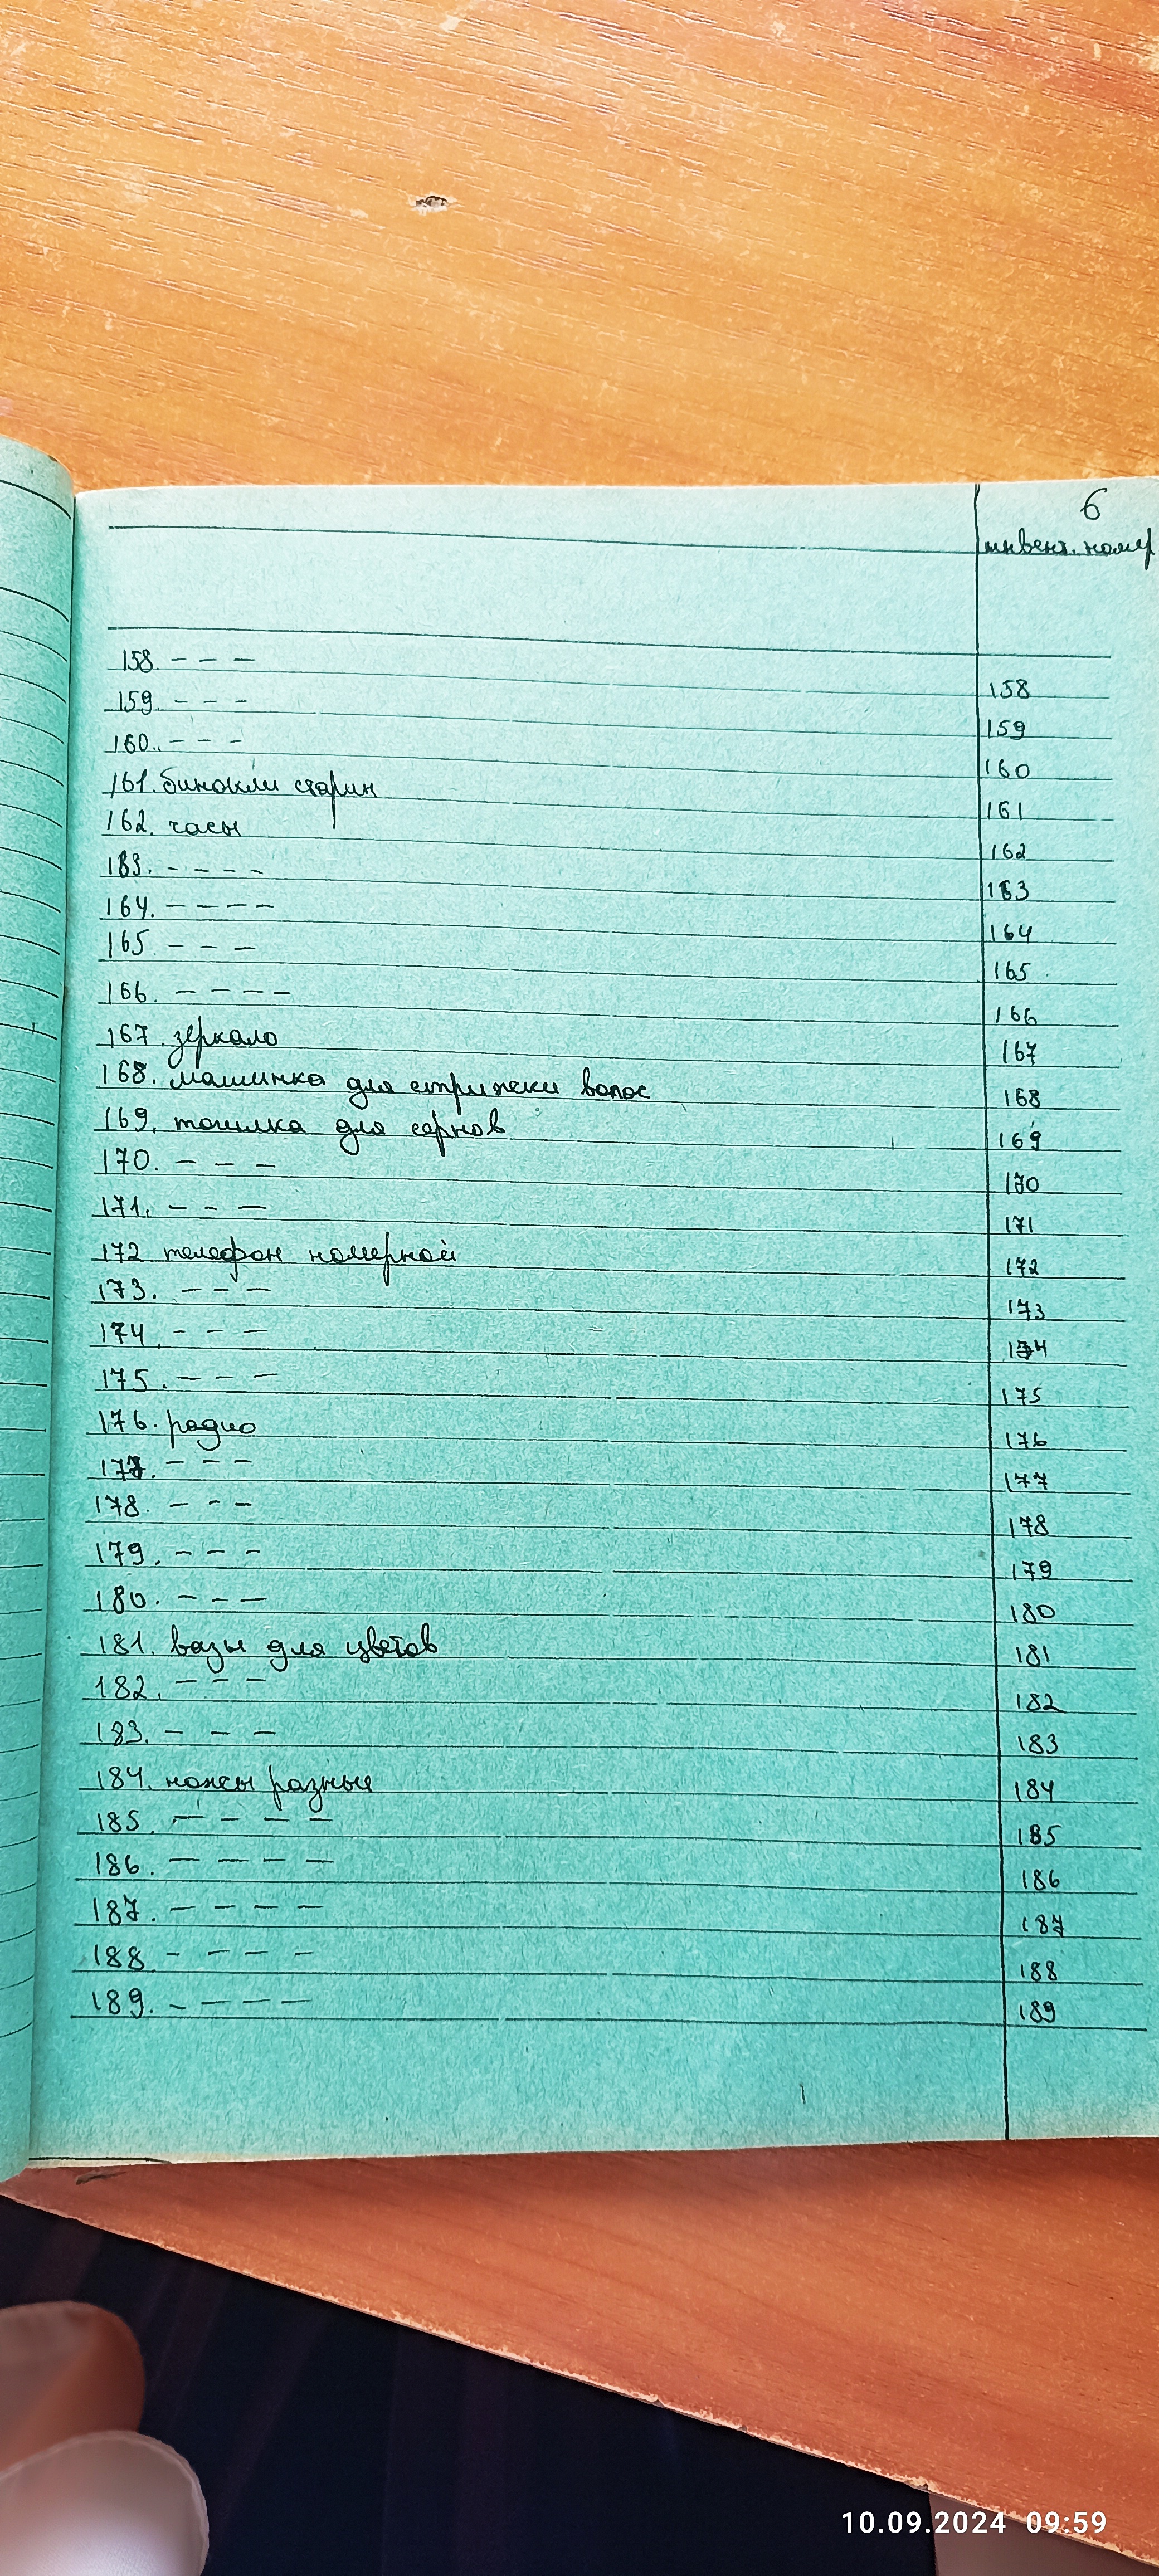 6
инвент. номер
158. - - - 158
159. - - - 159
160. - - - 160
161. бинокли старин 161
162. часы 162
163. - - - - 163
164. - - - - 164
165 - - - 165
166. - - - - 166
167. зеркало 167
168. машинка для стрижки волос 168
169. точилка для серпов 169
170. - - - 170
171. - - - 171
172. телефон номерной 172
173. - - - 173
174. - - - 174
175. - - - 175
176. радио 176
177. - - - 177
178. - - - 178
179. - - - 179
180. - - - 180
181. вазы для цветов 181
182. - - - 182
183. - - - 183
184. ножы разные 184
185. - - - - 185
186. - - - - 186
187. - - - - 187
188 - - - - 188
189. - - - - 189
10.09.2024 09:59